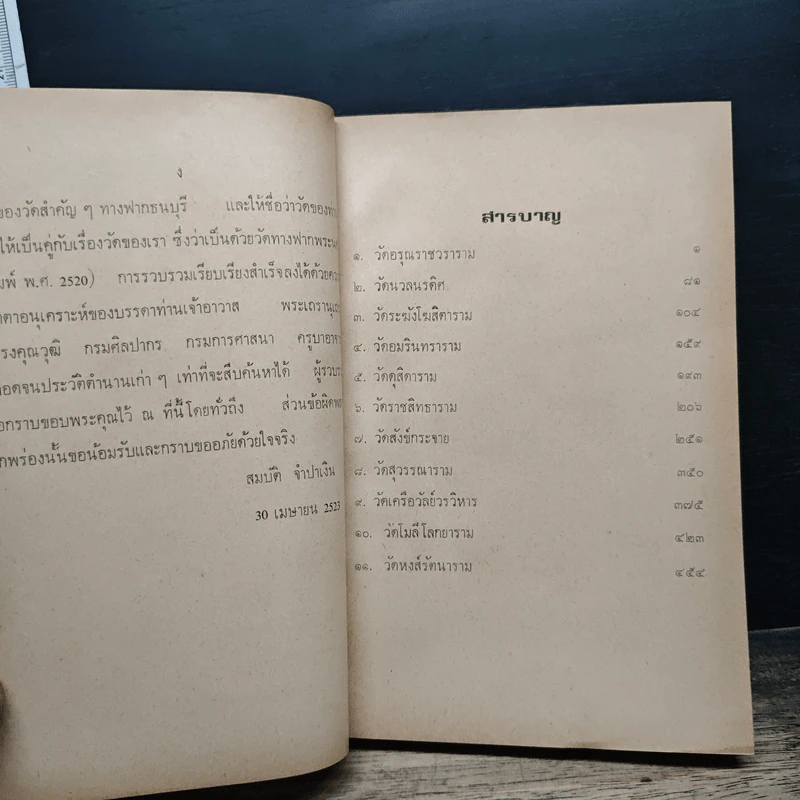 ง
ของวัดสำคัญ ๆ ทางฟากธนบุรี และให้ชื่อว่าวัดของท่าน
ให้เป็นคู่กับเรื่องวัดของเรา ซึ่งว่าเป็นด้วยวัดทางฟากพระนคร
พ.ศ. 2520) การรวบรวมเรียบเรียงสำเร็จลงได้ด้วยความ
ตาอนุเคราะห์ของบรรดาท่านเจ้าอาวาส พระเถรานุเถระ
รงคุณวุฒิ กรมศิลปากร กรมการศาสนา ครูบาอาจารย์
ตลอดจนประวัติตำนานเก่า ๆ เท่าที่จะสืบค้นหาได้ ผู้รวบรวม
กราบขอบพระคุณไว้ ณ ที่นี้โดยทั่วถึง ส่วนข้อผิดพลาด
กพร่องนั้นขอน้อมรับและกราบขออภัยด้วยใจจริง
สมบัติ จำปาเงิน
30 เมษายน 2523
สารบาญ
๑. วัดอรุณราชวราราม ๑
๒. วัดนวลนรดิศ ๘๑
๓. วัดระฆังโฆสิตาราม ๑๐๔
๔. วัดอมรินทราราม ๑๕๙
๕. วัดดุสิดาราม ๑๙๓
๖. วัดราชสิทธาราม ๒๐๖
๗. วัดสังข์กระจาย ๒๕๑
๘. วัดสุวรรณาราม ๓๕๐
๙. วัดเครือวัลย์วรวิหาร ๓๗๕
๑๐. วัดโมลีโลกยาราม ๔๒๓
๑๑. วัดหงส์รัตนาราม ๔๕๔